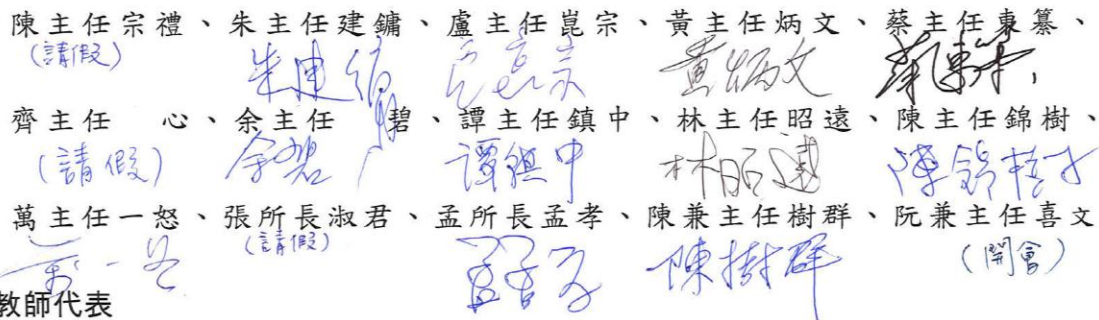 陳主任宗禮、朱主任建鏞、盧主任崑宗、黃主任炳文、蔡主任東纂、
(請假) 朱建鏞 盧崑宗 黃炳文 蔡東纂
齊主任 心、余主任 碧、譚主任鎮中、林主任昭遠、陳主任錦樹、
(請假) 余碧 譚鎮中 林昭遠 陳錦樹
萬主任一怒、張所長淑君、孟所長孟孝、陳兼主任樹群、阮兼主任喜文
萬一怒 (請假) 孟孟孝 陳樹群 (開會)
教師代表